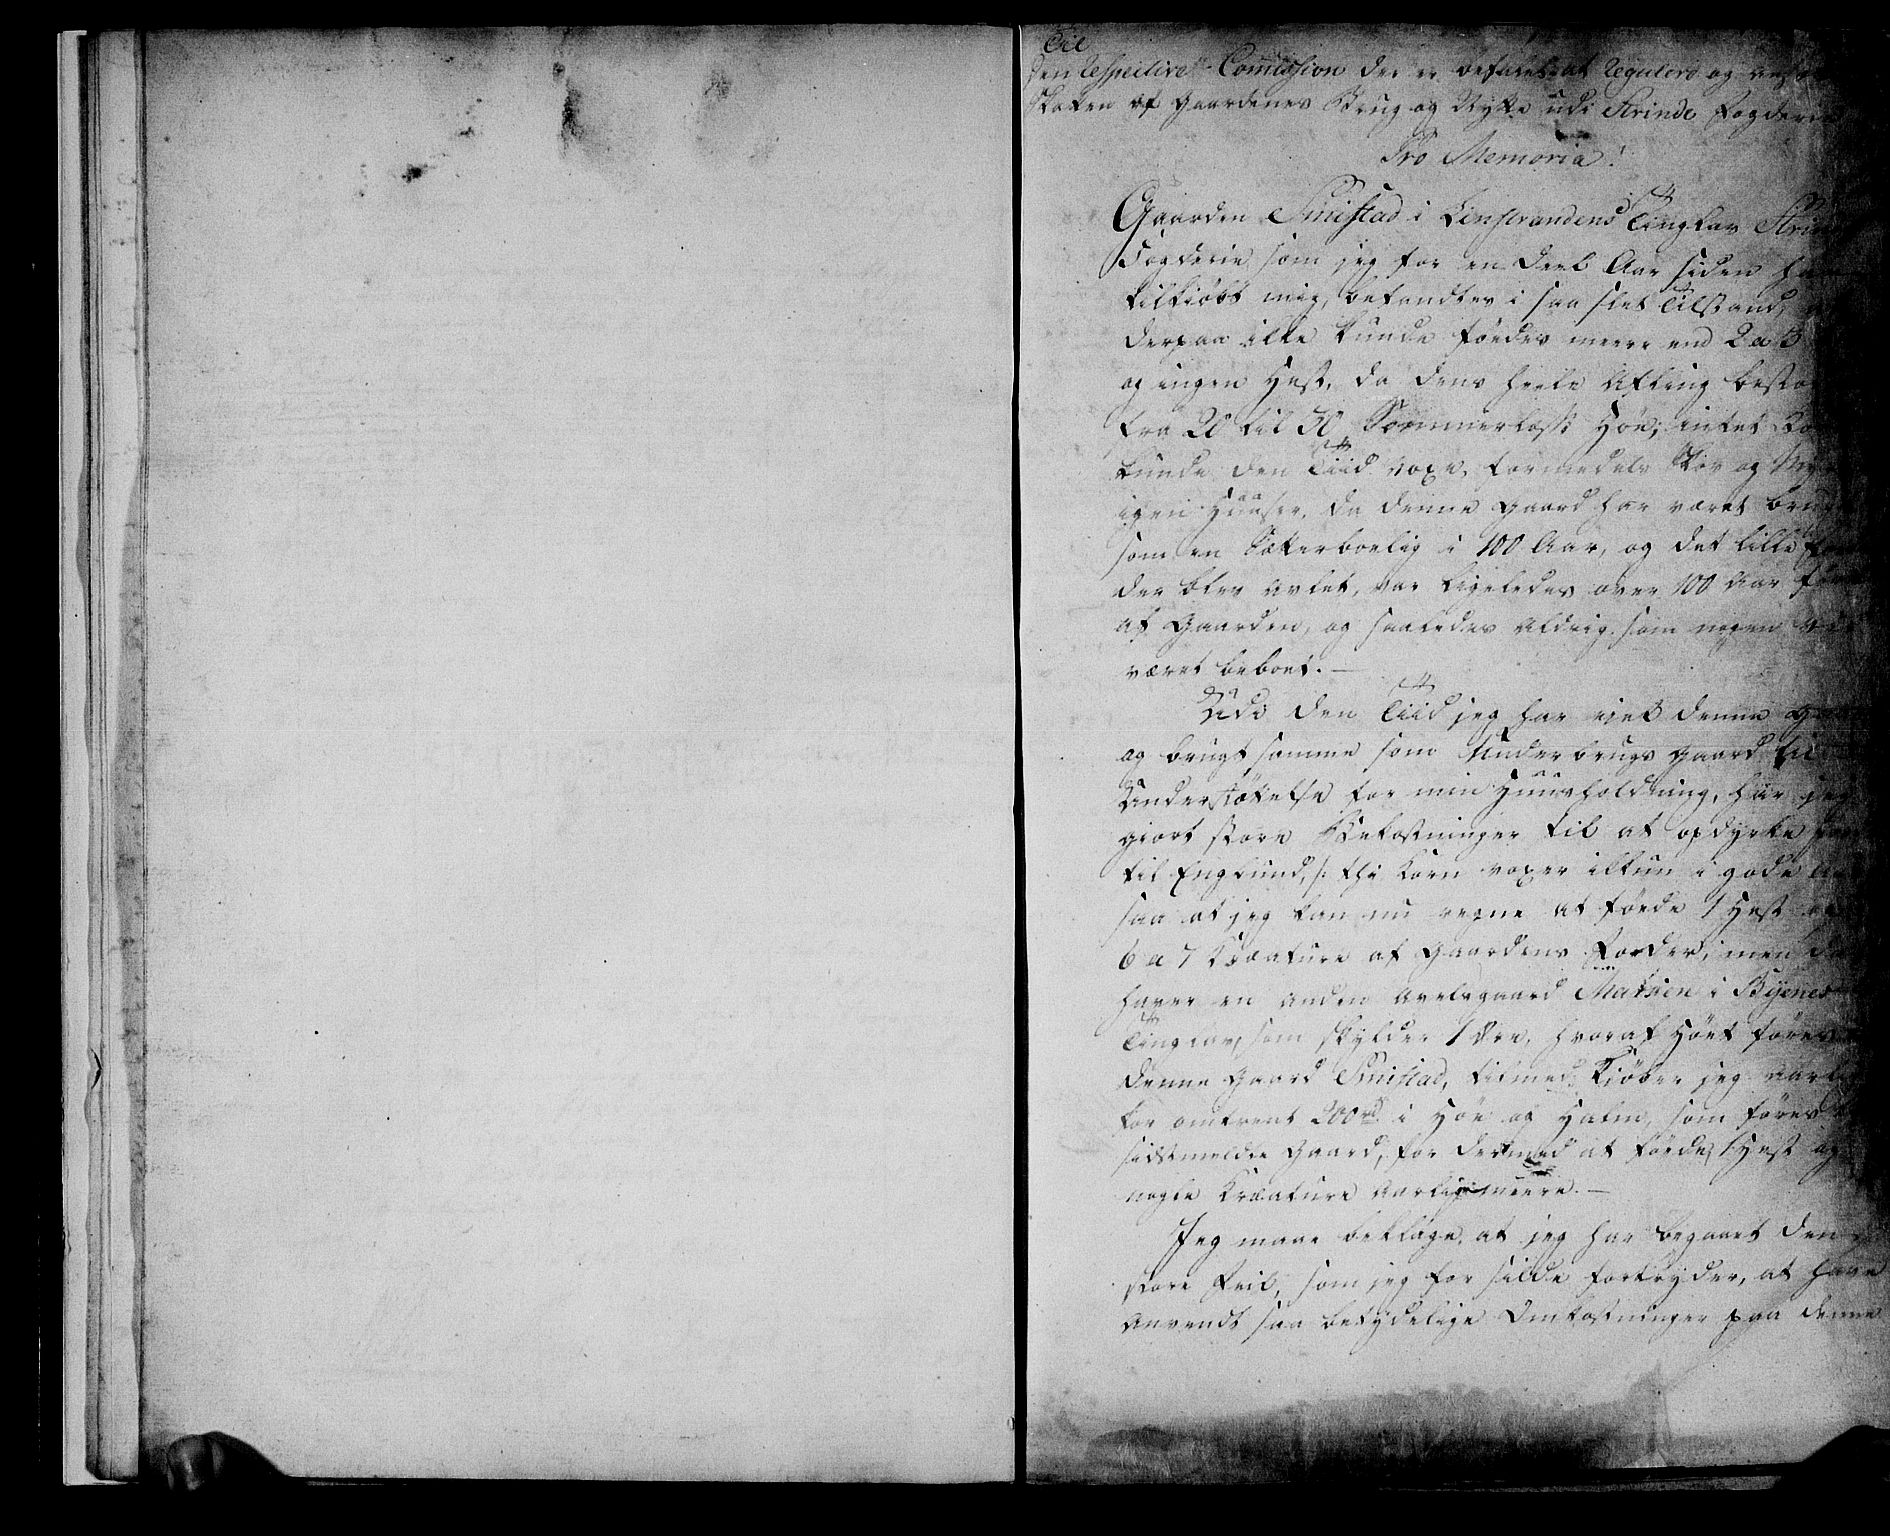 Til
Den Respective Comission der er befalet at Regulere og ansætte
Skaten af Gaardenes Brug og Nytte udi Strinde Fogderie
Pro Memoria!
Gaarden Smistad i Leinstrandens Tinglav Strinde
Fogderie som jeg for en deel Aar siden har
tilkiöbt mig, befandtes i saa slet Tilstand, at
derpaa ikke kunde föedes meere end 2 a 3
og ingen Hest, da dens heele Afling bestod
fra 20 til 30 Sommerlæss Höe; intet Korn
kunde den Tiid voxe, formedelst Skov og
igen Huuser, da denne Gaard har været brugt
som en Sæterboelig i 100 Aar, og det lille
der blev avlet, var ligeledes over 100 Aar
af Gaarden, og saaledes aldrig som nogen
været beboet. —
Udi den Tiid jeg har eiet denne Gaard
og brugt samme som Underbrugs Gaard til
Understøttelse for min Huusholdning, har jeg
giort store Bekostninger til at opdyrke
til Englund, /: thi Korn voxer ikkun i gode Aar
saa at jeg kan nu regne at föede 1 Hest og
6 a 7 Kreature af Gaardens Forder; men da
haver en anden Avelsgaard Matsien i Byenes
Tinglav, som skylder 1 Öre, hvoraf Höet föres
denne Gaard Smistad, tilmed kiöber jeg aarlig
for omtrent 200 rd i Höe og Halm, som föres
sidstmeldte Gaard, for dermed at föede 1 Hest og
nogle Kreature aarlig meere. —
Jeg maae beklage, at jeg har begaaet den
store Feil, som jeg for silde fortryder, at have
anvendt saa betydelige Omkostninger paa denne